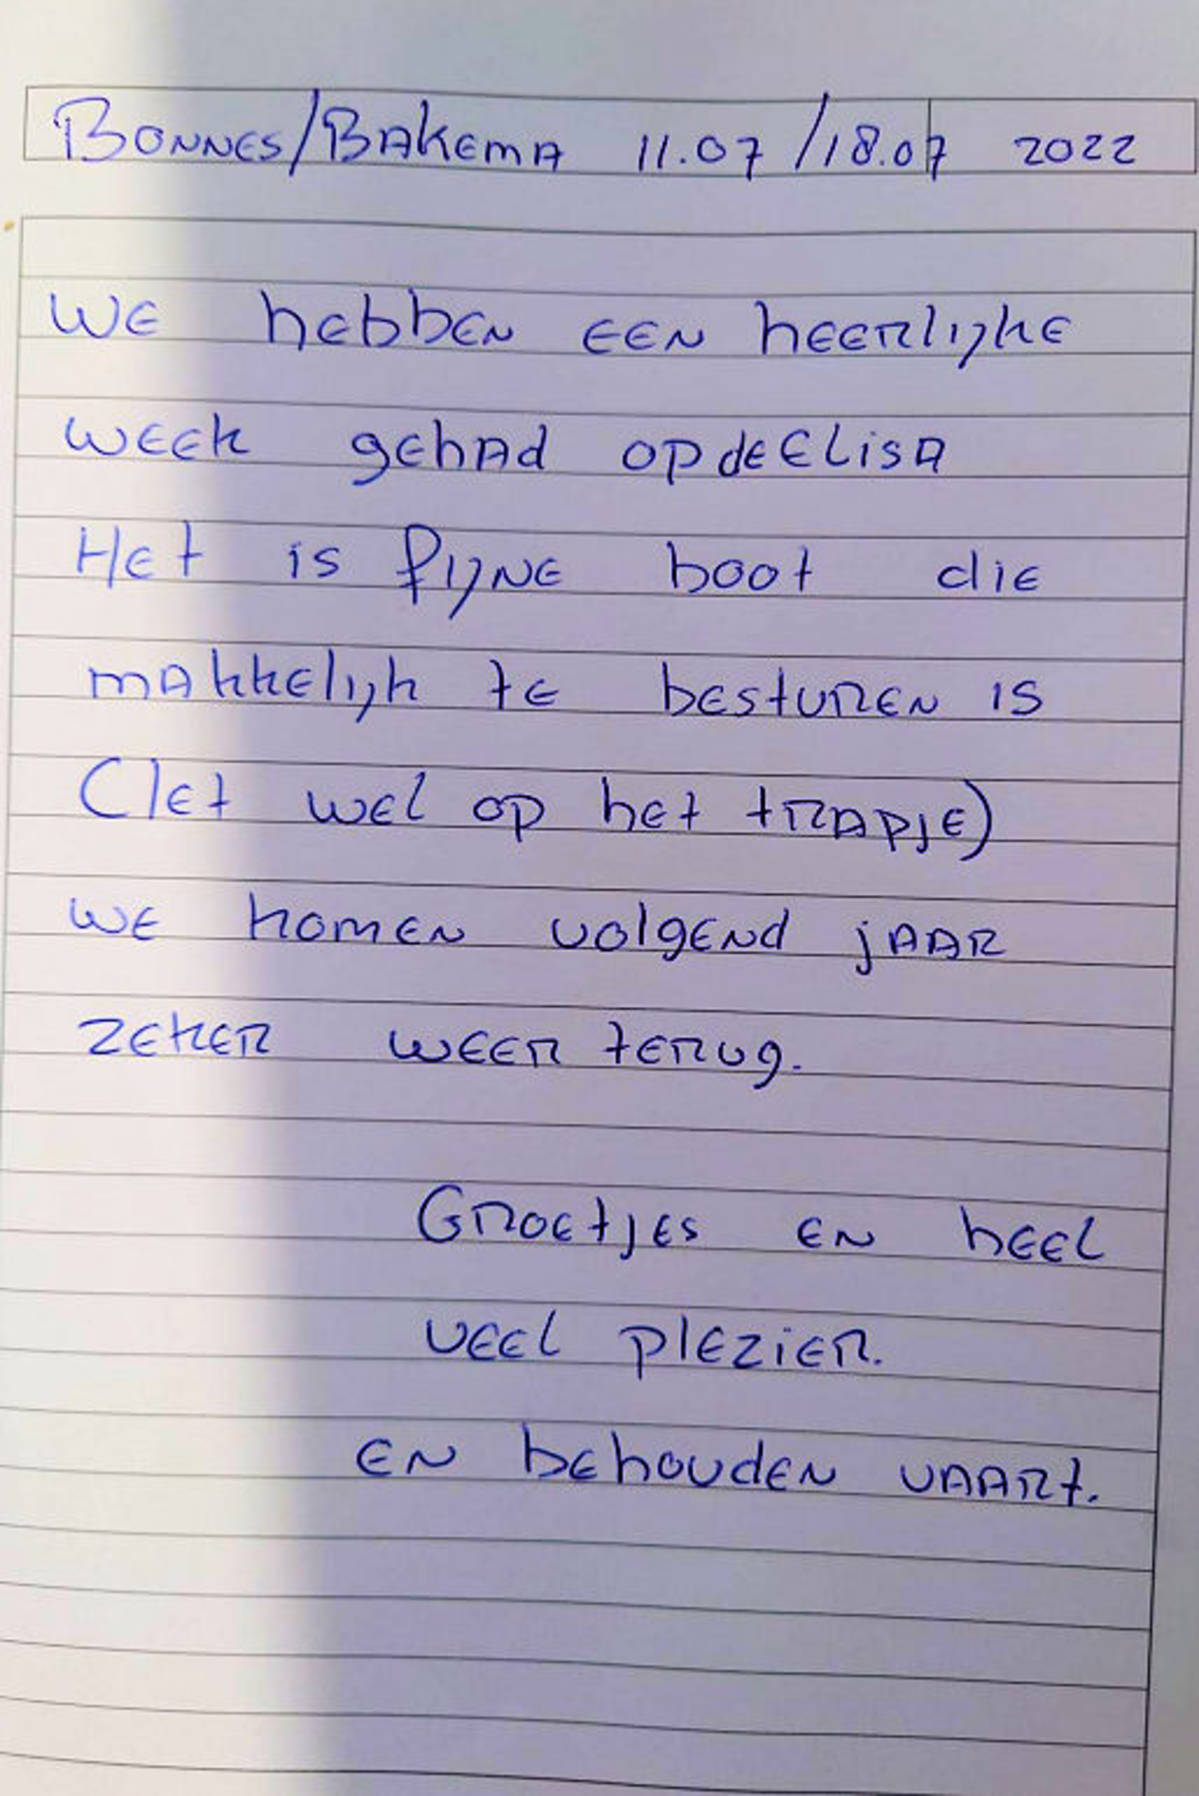 Bonnes/Bakema 11.07/18.07 2022
We hebben een heerlijke
week gehad op de Elisa
Het is fijne boot die
makkelijk te besturen is
(let wel op het trapje)
we komen volgend jaar
zeker weer terug.
Groetjes en heel
veel plezier.
en behouden vaart.